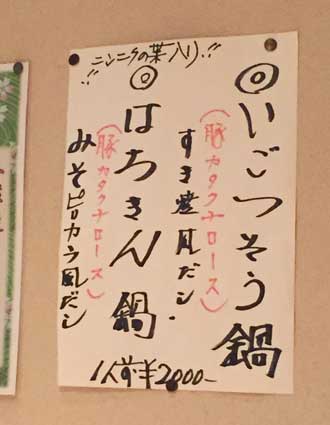 ニンニクの葉入り!!
◎いごっそう鍋
(豚カタクチロース)
すき焼風だし.
◎はちきん鍋
(豚カタクチロース)
みそピリカラ風だし
1人前半2000-